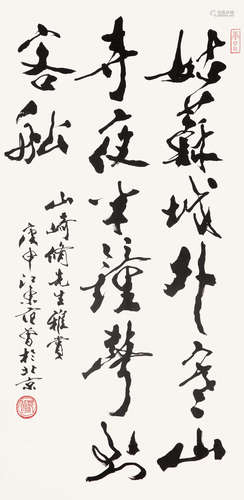 姑蘇城外寒山
寺夜半鐘聲到
客船
山崎脩先生雅賞
庚申江東范曾於北京